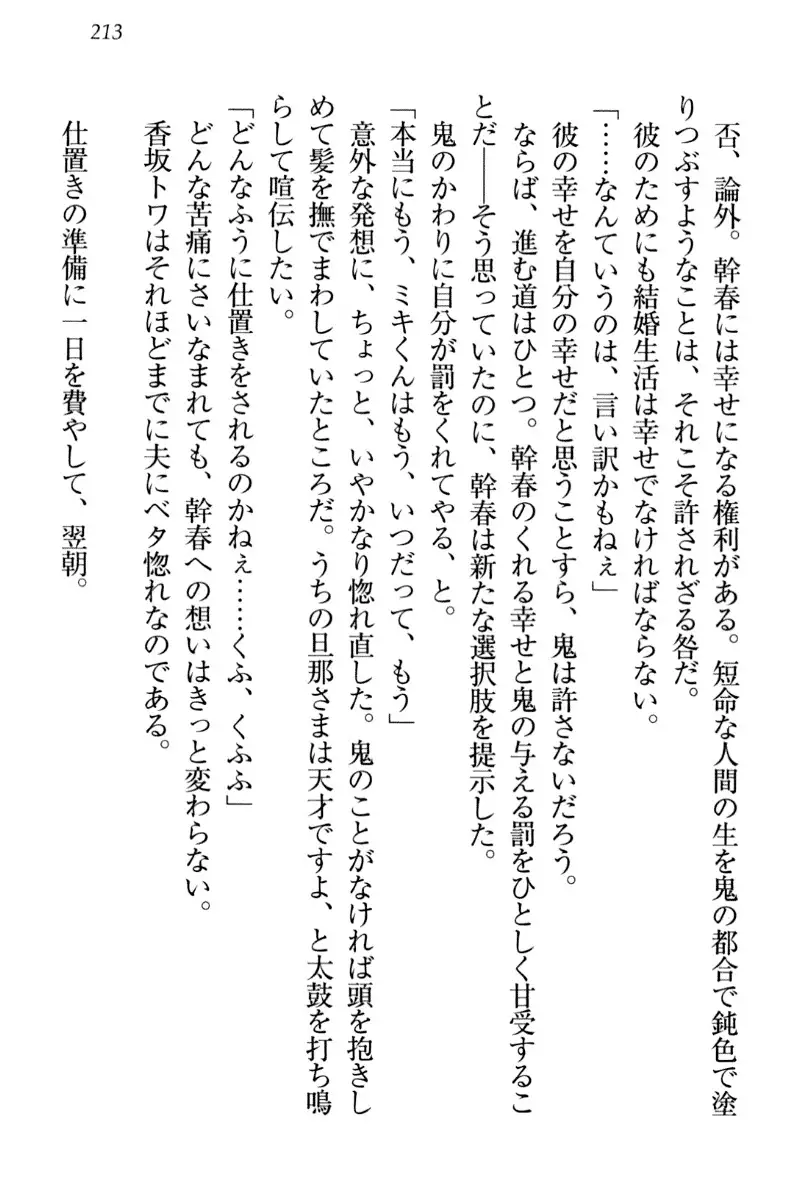 213
否、論外。幹春には幸せになる権利がある。短命な人間の生を鬼の都合で鈍色で塗
りつぶすようなことは、それこそ許されざる咎だ。
彼のためにも結婚生活は幸せでなければならない。
「……なんていうのは、言い訳かもねぇ」
彼の幸せを自分の幸せだと思うことすら、鬼は許さないだろう。
ならば、進む道はひとつ。幹春のくれる幸せと鬼の与える罰をひとしく甘受するこ
とだ――そう思っていたのに、幹春は新たな選択肢を提示した。
鬼のかわりに自分が罰をくれてやる、と。
「本当にもう、ミキくんはもう、いつだって、もう」
意外な発想に、ちょっと、いやかなり惚れ直した。鬼のことがなければ頭を抱きし
めて髪を撫でまわしていたところだ。うちの旦那さまは天才ですよ、と太鼓を打ち鳴
らして喧伝したい。
「どんなふうに仕置きをされるのかねぇ……くふ、くふふ」
どんな苦痛にさいなまれても、幹春への想いはきっと変わらない。
香坂トワはそれほどまでに夫にベタ惚れなのである。
仕置きの準備に一日を費やして、翌朝。